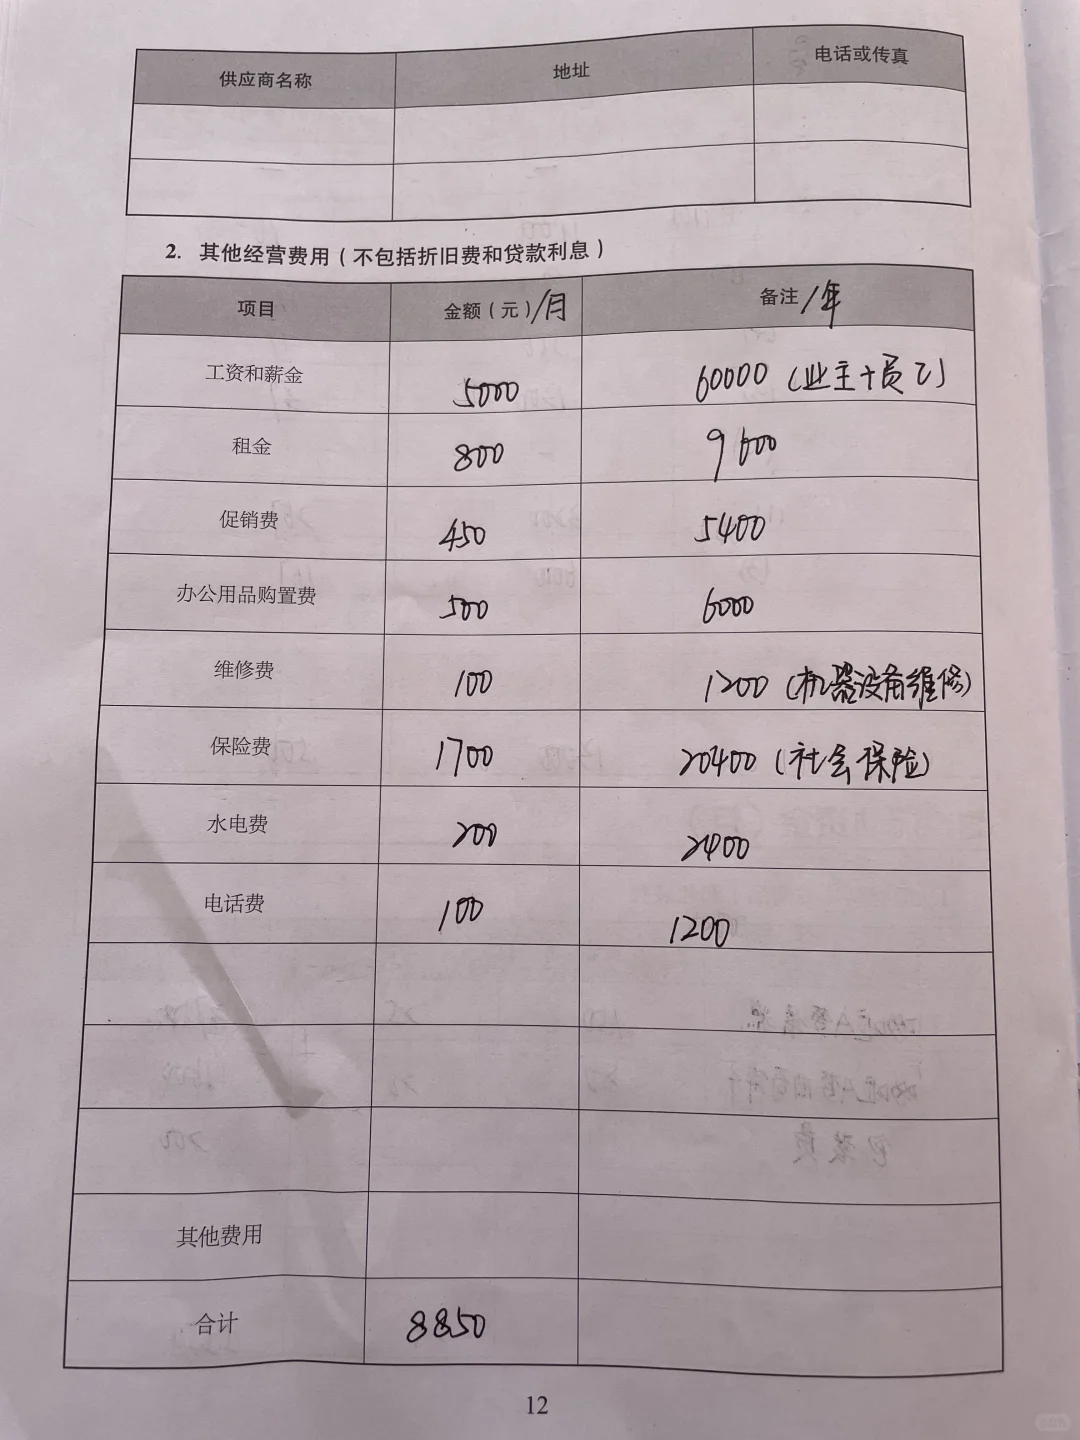 供应商名称 地址 电话或传真
2. 其他经营费用（不包括折旧费和贷款利息）
项目 金额（元）/月 备注/年
工资和薪金 5000 60000（业主+员工）
租金 800 9600
促销费 450 5400
办公用品购置费 500 6000
维修费 100 1200（机器设备维修）
保险费 1700 20400（社会保险）
水电费 200 2400
电话费 100 1200
其他费用
合计 8850
12